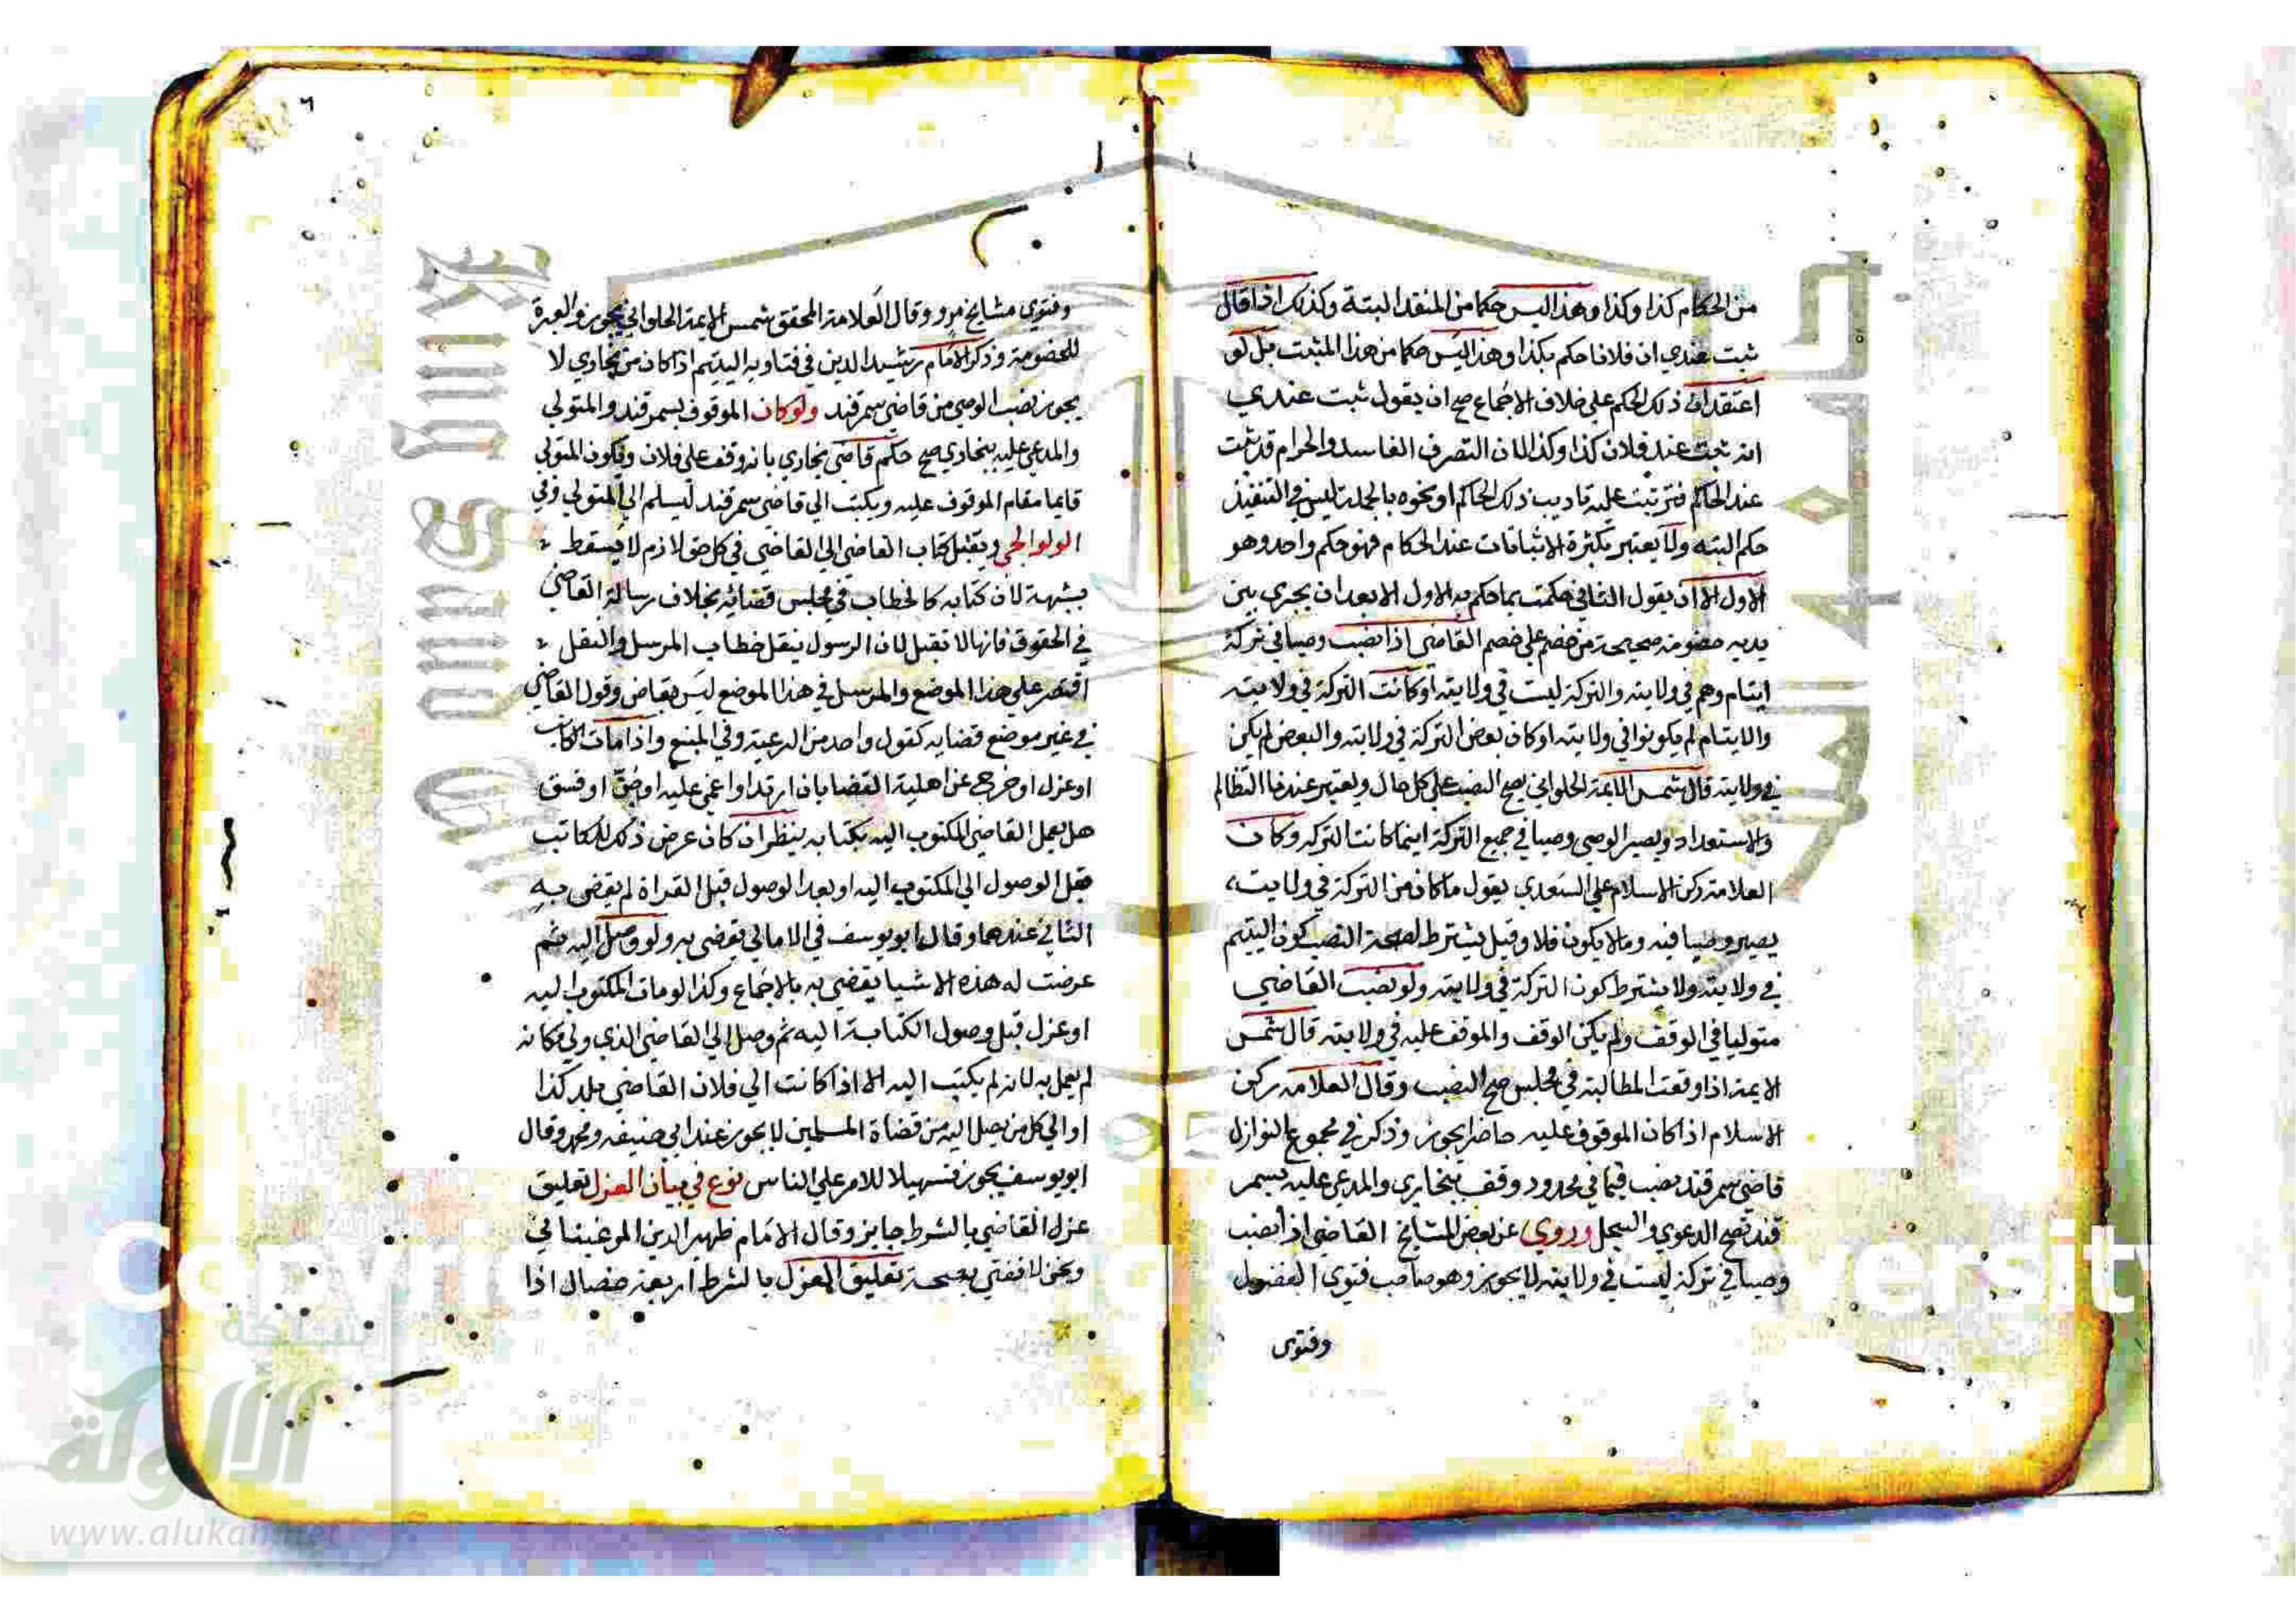 من الحكام كذا وكذا وهذا ليس حكما من المنقد البتة وكذلك اذا قال
ثبت عندي ان فلانا حكم بكذا وهذا ليس حكما من هذا المثبت بل لو
اعتقد ان ذلك الحكم علي خلاف الاجماع صح ان يقول ثبت عندي
انه ثبت عند فلان كذا وكذا لان التصرف الفاسد والحرام قد ثبت
عند الحاكم فترتبت عليه تاديب ذلك الحاكم او نحوه بالجملة ليس في التنفيذ
حكم البته ولا يعتبر بكثرة الاثباتات عند الحكام فهو حكم واحد وهو
الاول الا ان يقول الثاني حكمت بما حكم به الاول الا بعد ان يجري بين
يديه خصومة صحيحة من خصم علي خصم القاضي اذا نصب وصيا في تركة
ايتام وهم في ولايته والتركة ليست في ولايته او كانت التركة في ولايته
والايتام لم يكونوا في ولايته او كان بعض التركة في ولايته والبعض لم يكن
في ولايته قال شمس الايمة الحلواني يصح النصب علي كل حال ويعتبر عندنا التظالم
والاستعداد ويصير الوصي وصيا في جميع التركة اينما كانت التركه وكان
العلامة ركن الاسلام علي السعدي يقول ما كان من التركة في ولايته
يصير وصيا فيه وما لا يكون فلا وقيل يشترط لصحة النصب كون اليتيم
في ولايته ولا يشترط كون التركة في ولايته ولو نصب القاضي
متوليا في الوقف ولم يكن الوقف والموقف عليه في ولايته قال شمس
الايمة اذا وقعت المطالبة في مجلس صح النصب وقال العلامه ركن
الاسلام اذا كان الموقوف عليه حاضرا يجوز وذكر في مجموع النوازل
قاضي سمرقند نصب قيما في محدود وقف ببخاري والمدعي عليه بسمر
قند تصح الدعوي والسجل وروي عن بعض المشايخ القاضي اذا نصب
وصيا في تركة ليست في ولايته لا يجوز وهو صاحب فتوي الفضول
وفتوى
وفتوي مشايخ مرو وقال العلامة المحقق شمس الايمة الحلواني يجوز والعبرة
للخصومة وذكر الامام رشيد الدين في فتاويه اليتيم اذا كان من بخاري لا
يجوز نصب الوصي من قاضي سمرقند ولو كان الموقوف بسمرقند والمتولي
والمدعي عليه ببخاري صح حكم قاضي بخاري بانه وقف علي فلان ويكون المتولي
قايما مقام الموقوف عليه ويكتب الي قاضي سمرقند ليسلم الي المتولي وفي
الولوالجي ويقبل كتاب القاضي الي القاضي في كل حق لازم لا يسقط
بشبهة لان كتابه كالخطاب في مجلس قضائه بخلاف رسالة القاضي
في الحقوق فانها لا تقبل لان الرسول ينقل خطاب المرسل والنقل
اقتصر علي هذا الموضع والمرسل في هذا الموضع ليس بقاض وقول القاضي
في غير موضع قضايه كقول واحد من الرعية وفي المنبع واذا مات الكاتب
او عزل او خرج عن اهلية القضا بان ارتد او اغمي عليه او جن او فسق
هل يعمل القاضي المكتوب اليه بكتابه ينظر ان كان عرض ذلك للكاتب
قبل الوصول الي المكتوب اليه او بعد الوصول قبل القراة لم يقضي به
الثاني عندهما وقال ابو يوسف في الامالي يقضي به ولو وصل اليه ثم
عرضت له هذه الاشيا يقضي به بالاجماع وكذا لو مات المكتوب اليه
او عزل قبل وصول الكتابة اليه ثم وصل الي القاضي الذي ولي مكانه
لم يعمل به لانه لم يكتب اليه الا اذا كانت الي فلان القاضي ببلد كذا
او الي كل من يصل اليه من قضاة المسلمين لا يجوز عند ابي حنيفه ومحمد وقال
ابو يوسف يجوز تسهيلا للامر علي الناس نوع في بيان العزل تعليق
عزل القاضي بالشرط جايز وقال الامام ظهير الدين المرغيناني
ونحن لا نفتي بصحة تعليق العزل بالشرط اربعة خصال اذا
شبكة
الألوكة
www.alukah.net